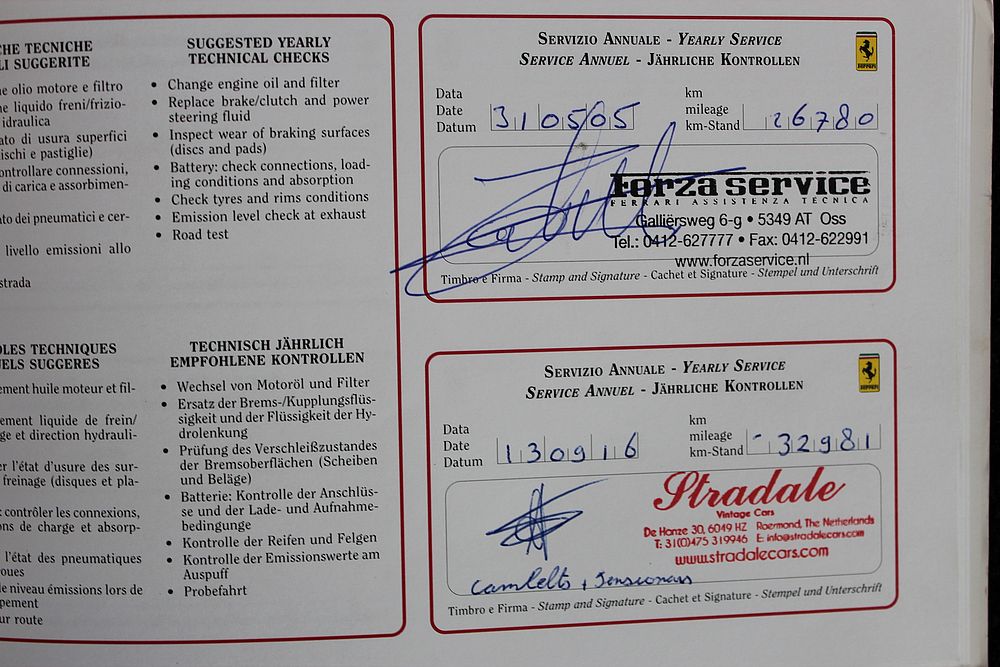 HE TECNICHE
LI SUGGERITE
e olio motore e filtro
e liquido freni/frizio-
idraulica
ato di usura superfici
ischi e pastiglie)
ontrollare connessioni,
di carica e assorbimen-
ato dei pneumatici e cer-
livello emissioni allo
strada
SUGGESTED YEARLY
TECHNICAL CHECKS
• Change engine oil and filter
• Replace brake/clutch and power
steering fluid
• Inspect wear of braking surfaces
(discs and pads)
• Battery: check connections, load-
ing conditions and absorption
• Check tyres and rims conditions
• Emission level check at exhaust
• Road test
SERVIZIO ANNUALE - YEARLY SERVICE
SERVICE ANNUEL - JÄHRLICHE KONTROLLEN
Data
Date
Datum
310505
km
mileage
km-Stand
26780
forza service
FERRARI ASSISTENZA TECNICA
Galliërsweg 6-g • 5349 AT Oss
Tel.: 0412-627777 • Fax: 0412-622991
www.forzaservice.nl
Timbro e Firma - Stamp and Signature - Cachet et Signature - Stempel und Unterschrift
LES TECHNIQUES
ELS SUGGERES
ement huile moteur et fil-
ement liquide de frein/
ge et direction hydrauli-
er l'état d'usure des sur-
freinage (disques et pla-
: contrôler les connexions,
ns de charge et absorp-
l'état des pneumatiques
oues
e niveau émissions lors de
pement
ur route
TECHNISCH JÄHRLICH
EMPFOHLENE KONTROLLEN
• Wechsel von Motoröl und Filter
• Ersatz der Brems-/Kupplungsflüs-
sigkeit und der Flüssigkeit der Hy-
drolenkung
• Prüfung des Verschleißzustandes
der Bremsoberflächen (Scheiben
und Beläge)
• Batterie: Kontrolle der Anschlüs-
se und der Lade- und Aufnahme-
bedingunge
• Kontrolle der Reifen und Felgen
• Kontrolle der Emissionswerte am
Auspuff
• Probefahrt
SERVIZIO ANNUALE - YEARLY SERVICE
SERVICE ANNUEL - JÄHRLICHE KONTROLLEN
Data
Date
Datum
130916
km
mileage
km-Stand
-32981
Stradale
Vintage Cars
De Hanze 30, 6049 HZ Roermond, The Netherlands
T: 31(0)475 319946 E: info@stradalecars.com
www.stradalecars.com
cambelts, tensionars
Timbro e Firma - Stamp and Signature - Cachet et Signature - Stempel und Unterschrift